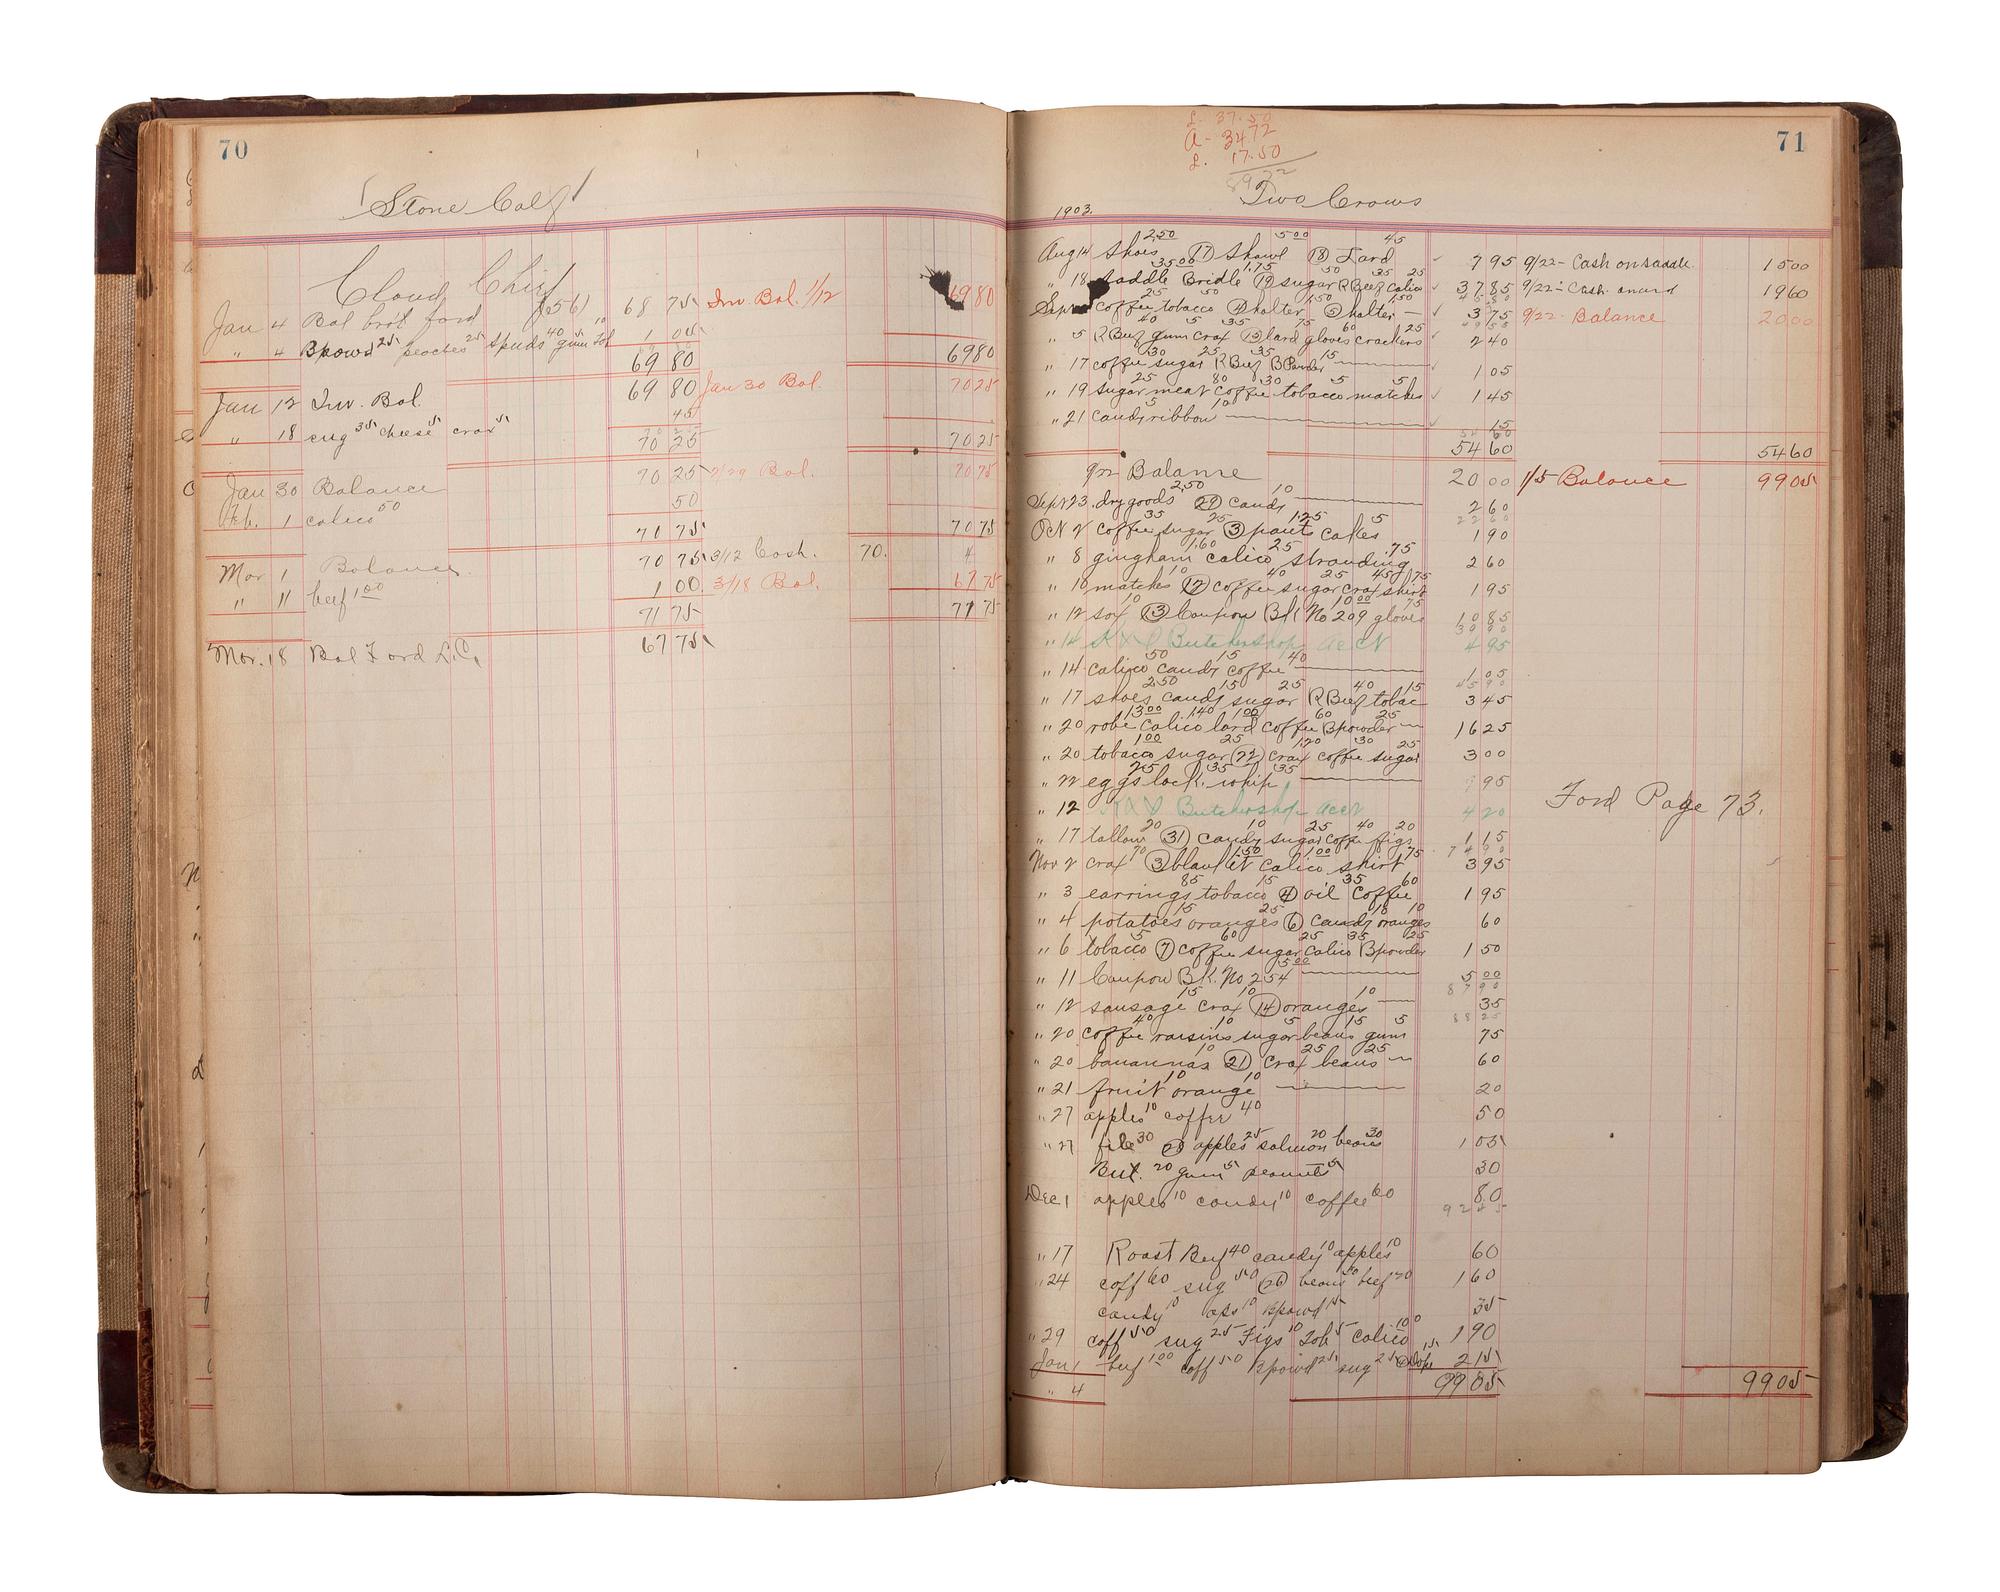 70
Stone Calf
Cloud Chief
(656)
Jan 4 Bal brot ford 68 75 Inv. Bal. 1/12 69 80
" 4 Bpowd 25 peaches 25 spuds 40 gum 5 Tob 10 1 05
69 80 69 80
Jan 12 Inv. Bal. 69 80 Jan 30 Bal. 70 25
" 18 sug 35 cheese 5 crax 5 45
70 25 70 25
Jan 30 Balance 70 25 2/29 Bal. 70 75
Feb. 1 calico 50 50
70 75 70 75
Mar 1 Balance 70 75 3/12 Cash. 70. 4
" 11 beef 1 00 1 00 3/18 Bal. 67 75
71 75 71 75
Mar. 18 Bal Ford L.C. 67 75
71
L. 37.50
A - 34.72
L. 17.50
89.72
1903. Two Crows
Aug 14 shoes 2,50 (17) Shawl 5 00 (18) Lard 45 7 95 9/22 - Cash on saddle 15 00
" 18 saddle 35 00 Bridle 1.75 (19) sugar 50 R Beef 35 calico 25 37 85 9/22 - Cash on acct 19 60
Sept coffee 25 tobacco 50 halter 1 50 (5) halter 1 50 3 75 9/22 - Balance 20 00
" 5 R Beef 40 gum 5 crax 35 lard 75 gloves 60 crackers 25 2 40
" 17 coffee 30 sugar 25 R Beef 35 B Powder 15 1 05
" 19 sugar 25 meat 80 coffee 30 tobacco 5 matches 5 1 45
" 21 candy 5 ribbon 10 15
54 60 54 60
9/22 Balance 20 00 1/5 Balance 99 05
Sept 23. dry goods 2,50 (29) candy 10 2 60
Oct 2 coffee 35 sugar 25 (3) pants 1.25 cakes 5 1 90
" 8 gingham 1.60 calico 25 strouding .75 2 60
" 10 matches 10 (12) coffee 40 sugar 25 crax 45 shirt 75 1 95
" 12 sox 10 (13) Coupon Bk No 209 10 00 gloves 75 10 85
" 14 Butchershop acct 4 95
" 14 calico 50 candy 15 coffee 40 1 05
" 17 shoes 2 50 candy 15 sugar 25 R Beef 40 tobac 15 3 45
" 20 robe 13 00 calico 1.40 lard 1 00 coffee 60 Bpowder 25 16 25
" 20 tobacco 1 00 sugar 25 (22) crax 1 20 coffee 30 sugar 25 3 00
" 22 eggs 25 lock 35 whip 35 95
" 12 Butchershop acct 4 20
Ford Page 73.
" 17 tallow 20 (31) candy 10 sugar 25 coffee 40 figs 20 1 15
Nov 2 crax 70 (3) blanket 1 50 calico 1 00 shirt 75 3 95
" 3 earrings 85 tobacco 15 (4) oil 35 coffee 60 1 95
" 4 potatoes 15 oranges 25 (6) candy 10 oranges 10 60
" 6 tobacco 5 (7) coffee 60 sugar 25 calico 35 Bpowder 25 1 50
" 11 Coupon Bk. No 254 5 00 5 00
" 12 sausage 15 crax 10 (14) oranges 10 35
" 20 coffee 40 raisins 10 sugar 5 beans 15 gum 5 75
" 20 banannas 10 (21) crax 25 beans 25 60
" 21 fruit 10 orange 10 20
" 27 apples 10 coffee 40 50
" 27 file 30 apples 25 salmon 20 beans 30 1 05
But. 20 gum 5 peanuts 5 30
Dec 1 apples 10 candy 10 coffee 60 80
92 45
" 17 Roast Beef 40 candy 10 apples 10 60
" 24 coff 60 sug 50 (26) beans beef 20 1 60
candy 10 aps 10 Bpowd 15 35
" 29 coff 50 sug 25 Figs 10 Tob 5 calico 1 00 1 90
Jan 1 beef 1 00 coff 50 Bpowd 25 sug 25 2 15
" 4 99 05 99 05